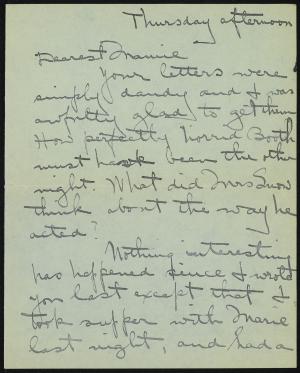 Thursday afternoon
Dearest Mamie
Your letters were
simply dandy and I was
awfully glad to get them
How perfectly horrid Booth
must have been the other
night. What did Mrs Snow
think about the way he
acted?
Nothing interesting
has happened since I wrote
you last except that I
took supper with Marie
last night, and had a